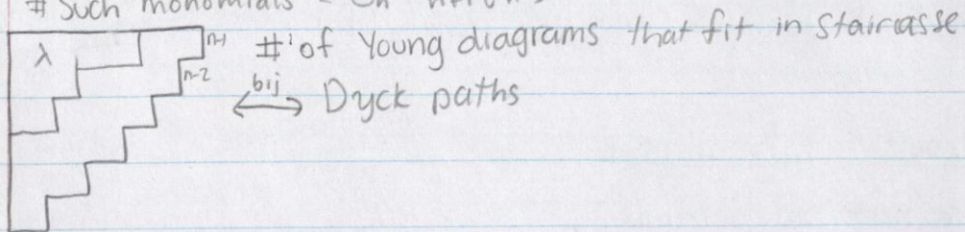 # Such monomials
λ n-1 # of Young diagrams that fit in Staircasse
n-2 bij
⟷ Dyck paths